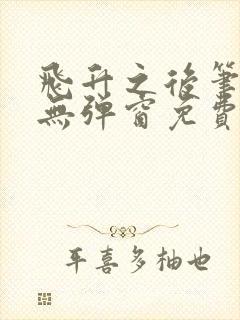 飛升之後筆
無彈窗免費
平喜多柚也